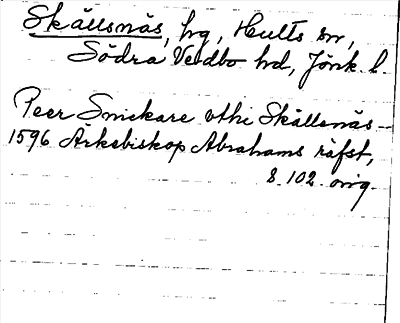 Skällsnäs, hg, Hults sn,
Södra Vedbo hd, Jönk. l.
Peer Snickare vthi Skällsnäs –
1596 Ärkebiskop Abrahams räfst,
s. 102. orig.